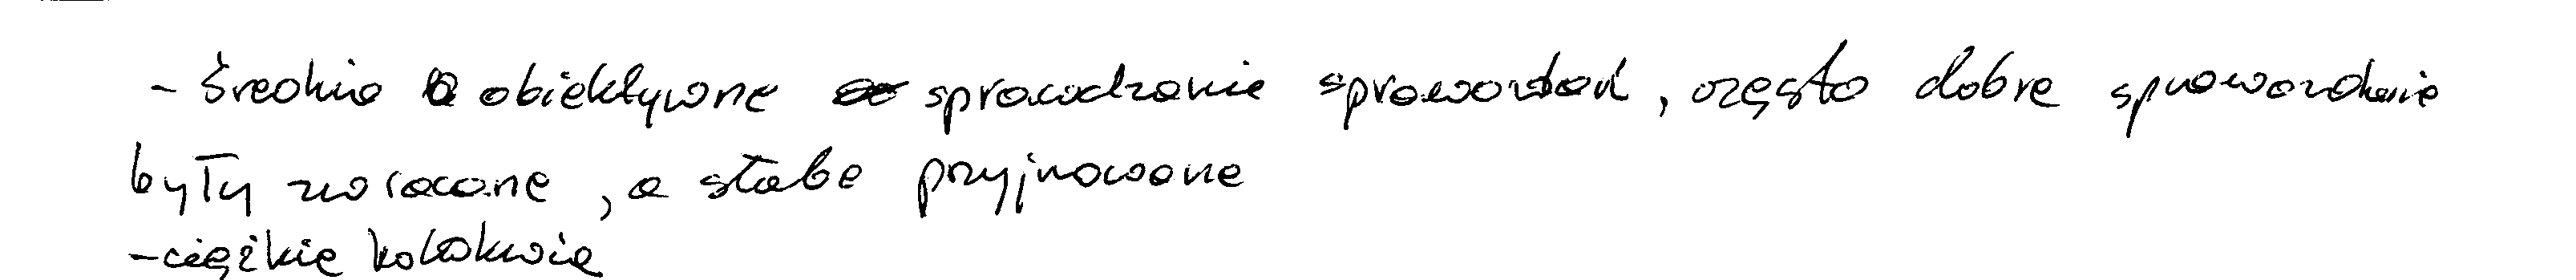 - średnio obiektywne sprawdzanie sprawozdań, często dobre sprawozdanie
były zwracane, a słabe przyjmowane
- ciężkie kolokwia